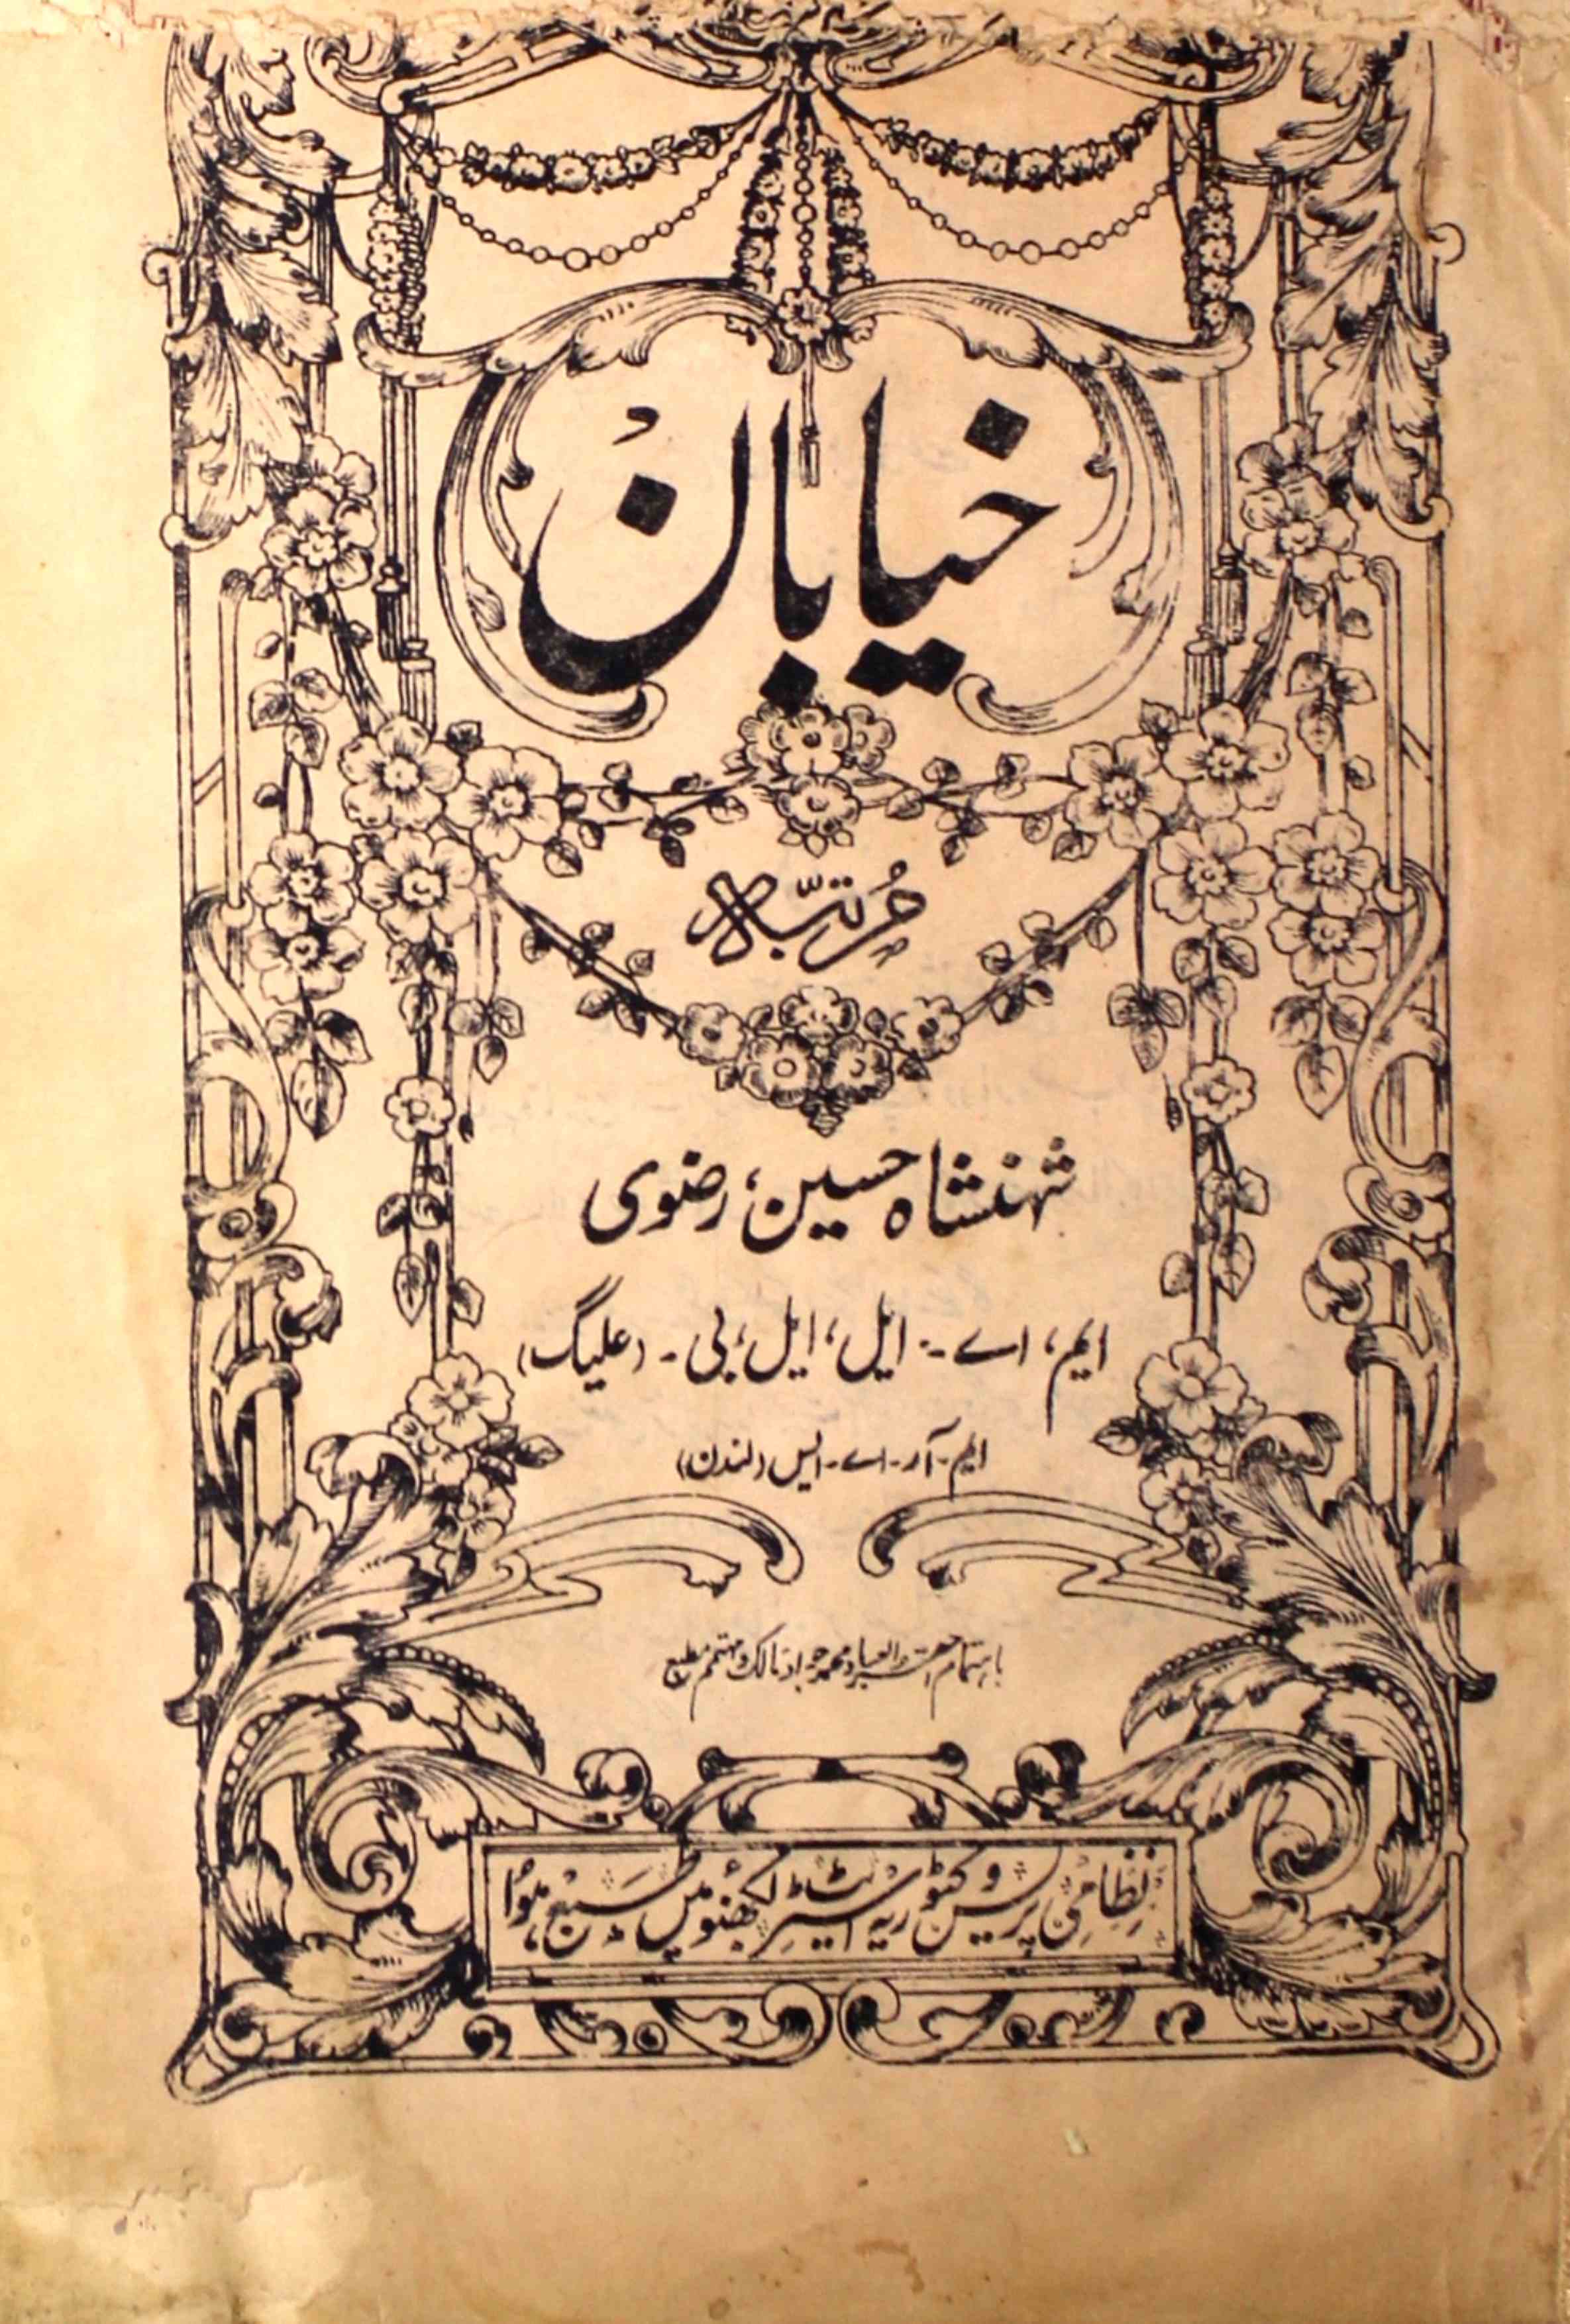 خیابان
مرتبہ
شہنشاہ حسین، رضوی
ایم، اے۔ ایل، ایل، بی۔ (علیگ)
ایم۔ آر۔ اے۔ ایس (لندن)
باہتمام احقر العباد محمد جواد مالک و مہتمم مطبع
نظامی پریس وکٹوریہ اسٹریٹ لکھنؤ میں طبع ہوا